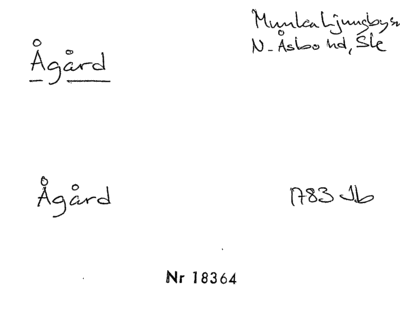 Ågård
Munka Ljungbys
N. Åsbo hd, Sk
Ågård
1783 Jb
Nr 18364